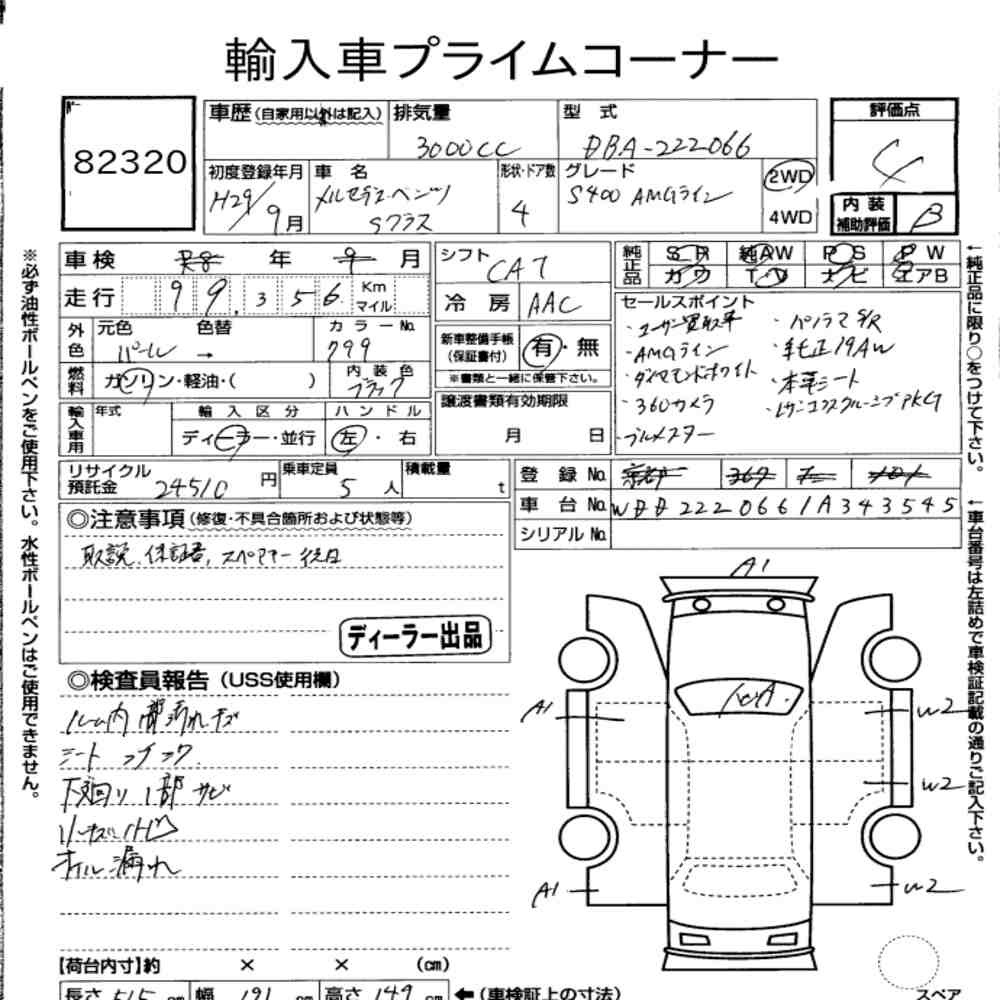 輸入車プライムコーナー
82320
車歴(自家用以外は記入)
排気量
3000CC
型式
DBA-222066
評価点
4
初度登録年月
H29/9月
車名
メルセデス・ベンツ
Sクラス
形状・ドア数
4
グレード
S400 AMGライン
2WD
4WD
内装
補助評価
B
車検 R8 年 9 月
走行 99,356 Km
マイル
シフト CAT
冷房 AAC
純正品 SR 純AW PS PW
カワ TV ナビ エアB
外色
元色 色替
パール →
カラーNo.
799
燃料
ガソリン・軽油・( )
内装色
ブラック
新車整備手帳
(保証書付)
有・無
※書類と一緒に保管下さい。
譲渡書類有効期限
月 日
輸入車用
年式
輸入区分
ディーラー・並行
ハンドル
左・右
セールスポイント
・ユーザー買取車
・AMGライン
・ダイヤモンドホワイト
・360カメラ
・ブルメスター
・パノラマS/R
・純正19AW
・本革シート
・レザーエクスクルーシブPKG
リサイクル
預託金
24510 円
乗車定員
5 人
積載量
t
登録No. 京都
車台No. WDD2220661A343545
シリアルNo.
◎注意事項(修復・不具合箇所および状態等)
取説、保証書、スペアキー後日
ディーラー出品
◎検査員報告(USS使用欄)
ルーム内 部汚れキズ
シート
下廻り1部サビ
オイル漏れ
A1
A1
A1
W2
W2
W2
スペア
【荷台内寸】約 × × (cm)
長さ 515 cm 幅 191 cm 高さ 149 cm ←(車検証上の寸法)
※必ず油性ボールペンをご使用下さい。水性ボールペンはご使用できません。
←純正品に限り○をつけて下さい。
←車台番号は左詰めで車検証記載の通りご記入下さい。